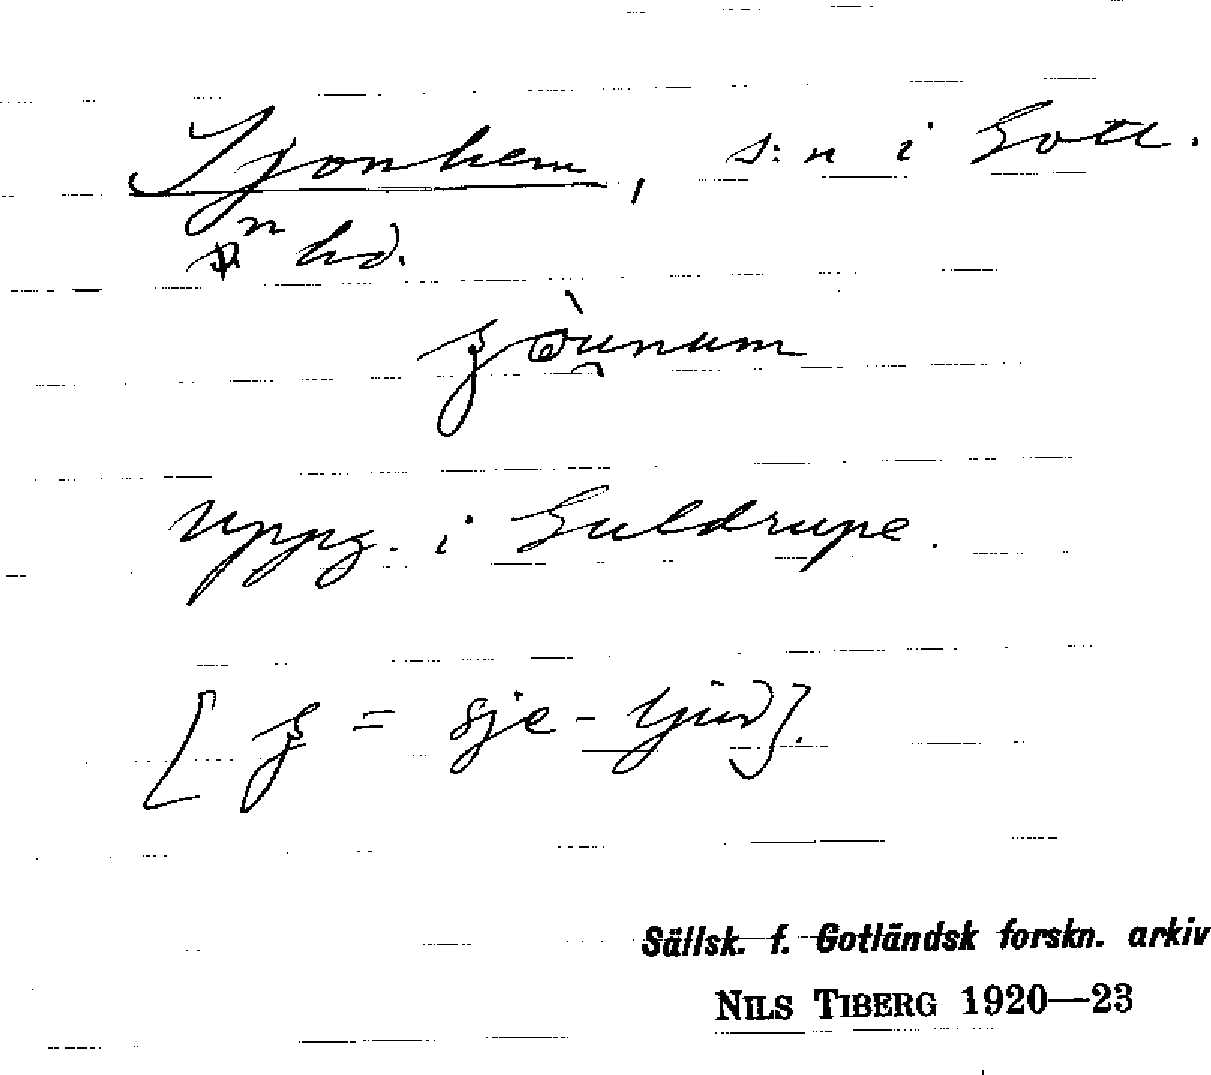 Sjonhem, s:n i Gotl.
n hd.
uppg. i Guldrupe.
[ = sje-ljud].
Sällsk. f. Gotländsk forskn. arkiv
NILS TIBERG 1920—23